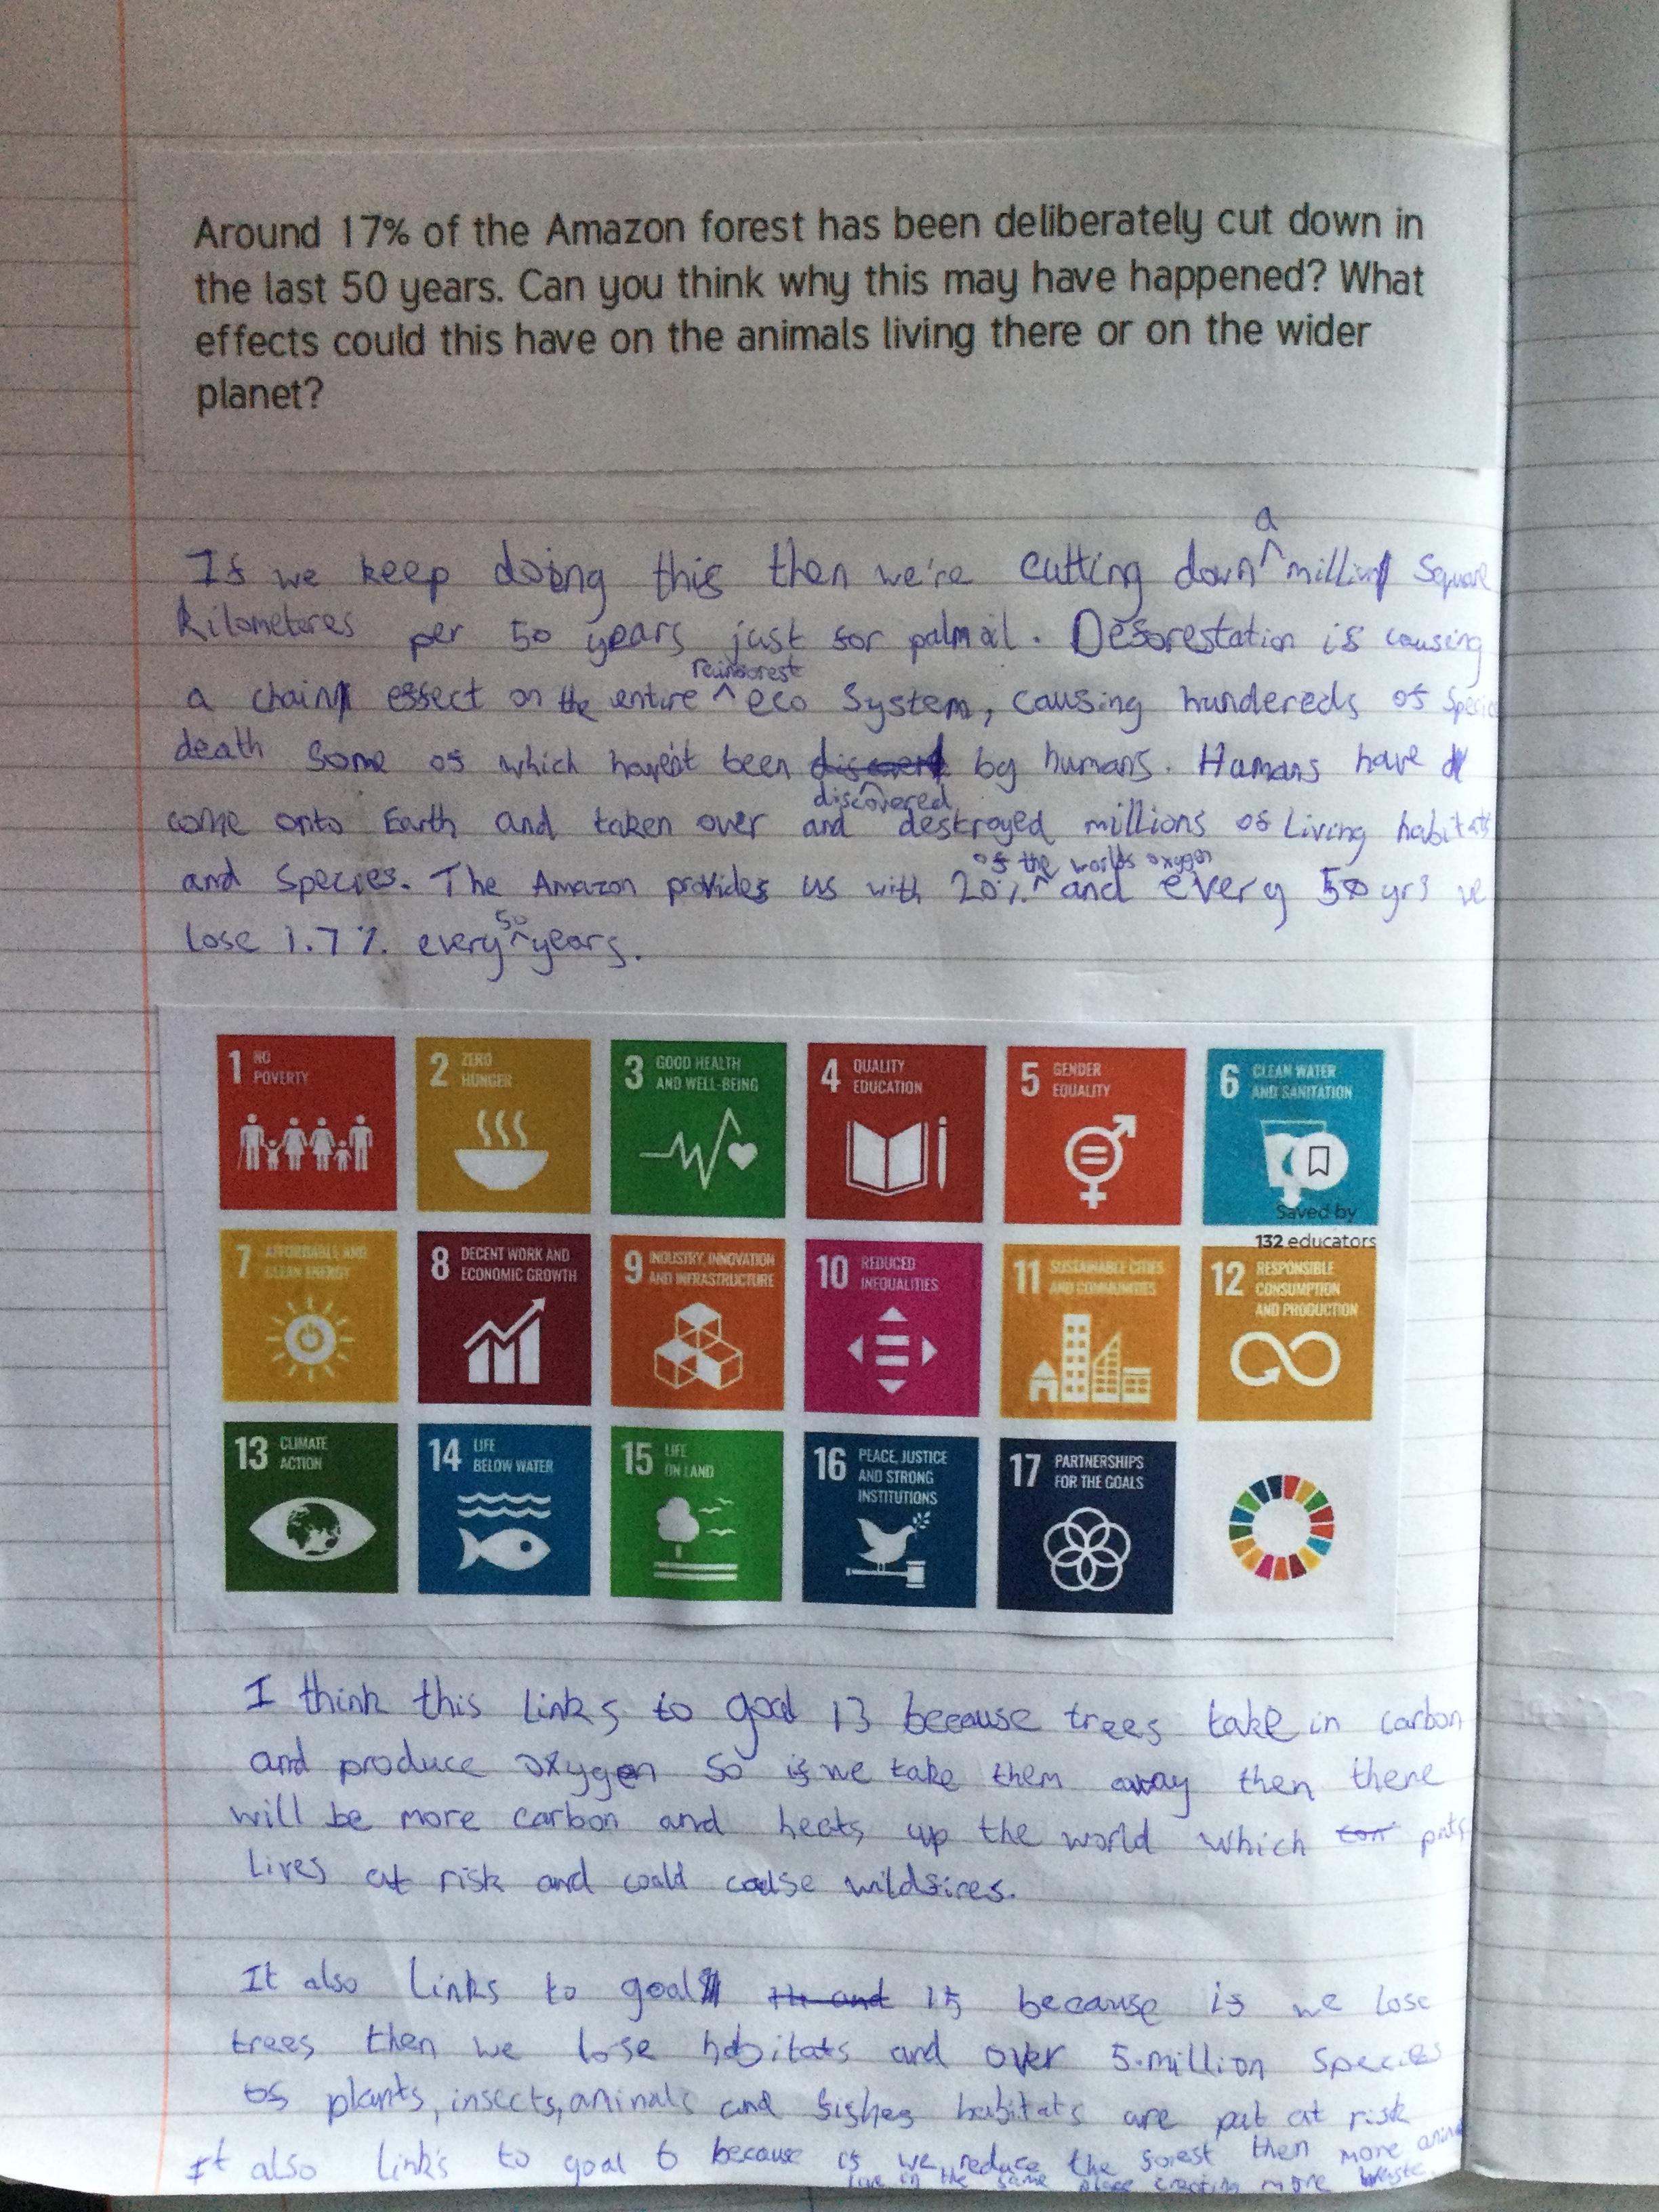 Around 17% of the Amazon forest has been deliberately cut down in
the last 50 years. Can you think why this may have happened? What
effects could this have on the animals living there or on the wider
planet?
a
If we keep doing this then we're cutting down ^ million Square
Kilometeres per 50 years just for palm oil. Deforestation is causing
rainforest
a chain effect on the entire ^ eco System, causing hundereds of Species
death some of which haven't been discoverd by humans. Humans have
discovered
come onto Earth and taken over and destroyed millions of Living habitats
of the worlds oxygen
and Species. The Amazon provides us with 20% ^ and every 50 yrs we
50
lose 1.7% every ^ years.
1 NO POVERTY
2 ZERO HUNGER
3 GOOD HEALTH AND WELL-BEING
4 QUALITY EDUCATION
5 GENDER EQUALITY
6 CLEAN WATER AND SANITATION
Saved by
132 educators
7 AFFORDABLE AND CLEAN ENERGY
8 DECENT WORK AND ECONOMIC GROWTH
9 INDUSTRY, INNOVATION AND INFRASTRUCTURE
10 REDUCED INEQUALITIES
11 SUSTAINABLE CITIES AND COMMUNITIES
12 RESPONSIBLE CONSUMPTION AND PRODUCTION
13 CLIMATE ACTION
14 LIFE BELOW WATER
15 LIFE ON LAND
16 PEACE, JUSTICE AND STRONG INSTITUTIONS
17 PARTNERSHIPS FOR THE GOALS
I think this Links to goal 13 because trees take in carbon
and produce oxygen so if we take them away then there
will be more carbon and heats up the world which puts
Lives at risk and could cause wildfires.
It also Links to goal 15 because if we lose
trees then we lose habitats and over 5 million Species
of plants, insects, animals and fishes habitats are put at risk
It also Links to goal 6 because if we reduce the forest then more
live in the same place creating more waste